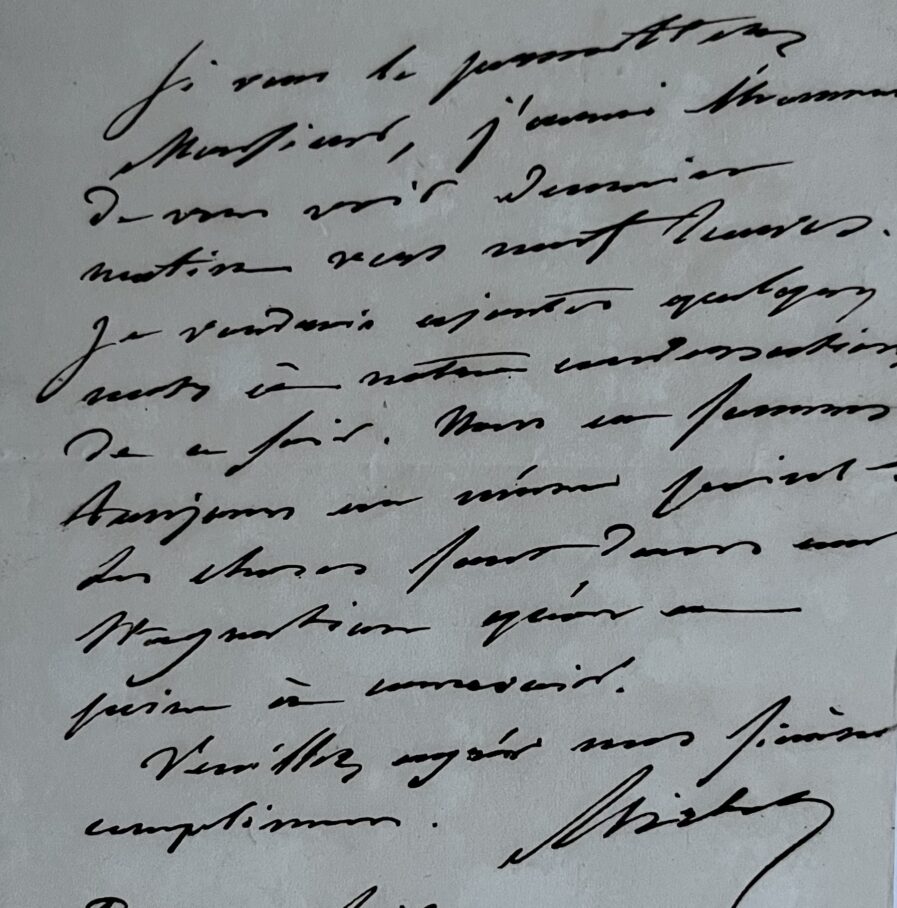 Si vous le permettez,
Monsieur, j'aurai l'honneur
de vous voir demain
matin vers neuf heures.
Je voudrais ajouter quelques
mots à notre conversation
de ce soir. Nous en sommes
toujours au même point
les choses sont dans une
stagnation qu'on a
peine à concevoir.
Veuillez agréer mes sincères
complimens.